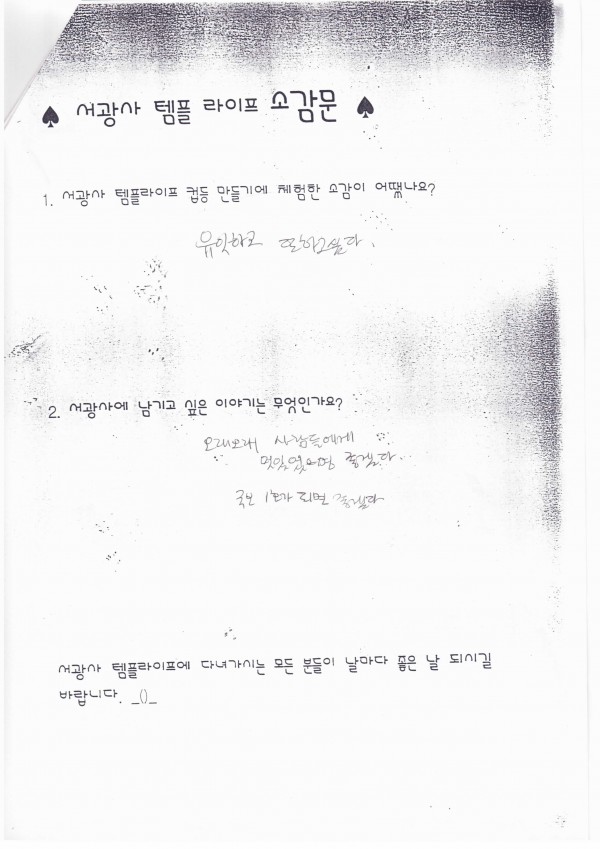 ♠ 서광사 템플 라이프 소감문 ♠
1. 서광사 템플라이프 컵등 만들기에 체험한 소감이 어땠나요?
유잇하고 또하고싶다.
2. 서광사에 남기고 싶은 이야기는 무엇인가요?
오래오래 사람들에게
좋겠다.
국보 1호가 되면 좋겠다
서광사 템플라이프에 다녀가시는 모든 분들이 날마다 좋은 날 되시길
바랍니다. _()_